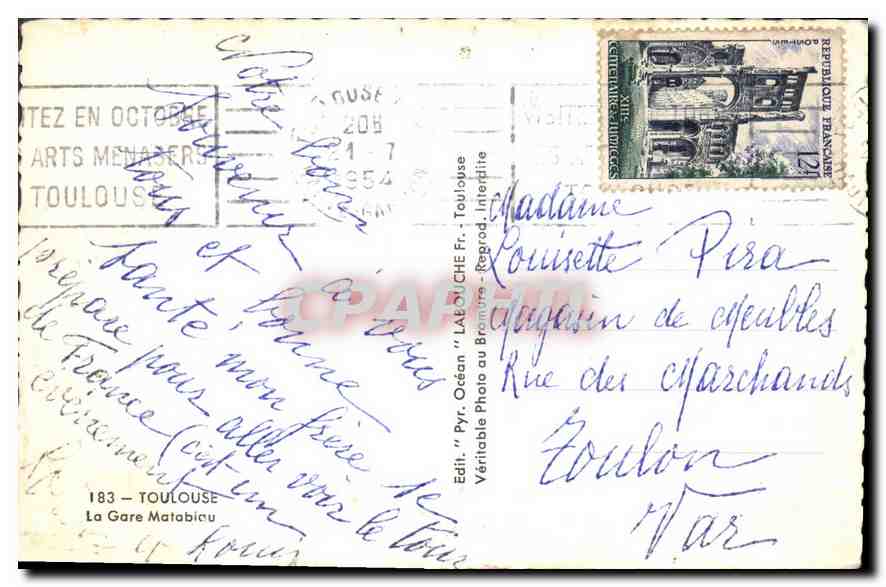 TEZ EN OCTOBRE
ARTS MENAGERS
TOULOUSE
20H
7
1954
VISITE
POSTES
REPUBLIQUE FRANÇAISE
XIIIE CENTENAIRE DE JUMIEGES
12F
Notre bon
souvenir à vous
tous et bonne
santé, mon frère se
prépare pour aller voir le tour
de France (c'est un
évènement
à Louis
CPAPHIL
183 – TOULOUSE
La Gare Matabiau
Edit. " Pyr. Océan " LABOUCHE Fr. - Toulouse
Véritable Photo au Bromure - Reprod. Interdite
Madame
Louisette Pira
Magasin de Meubles
Rue des Marchands
Toulon
Var